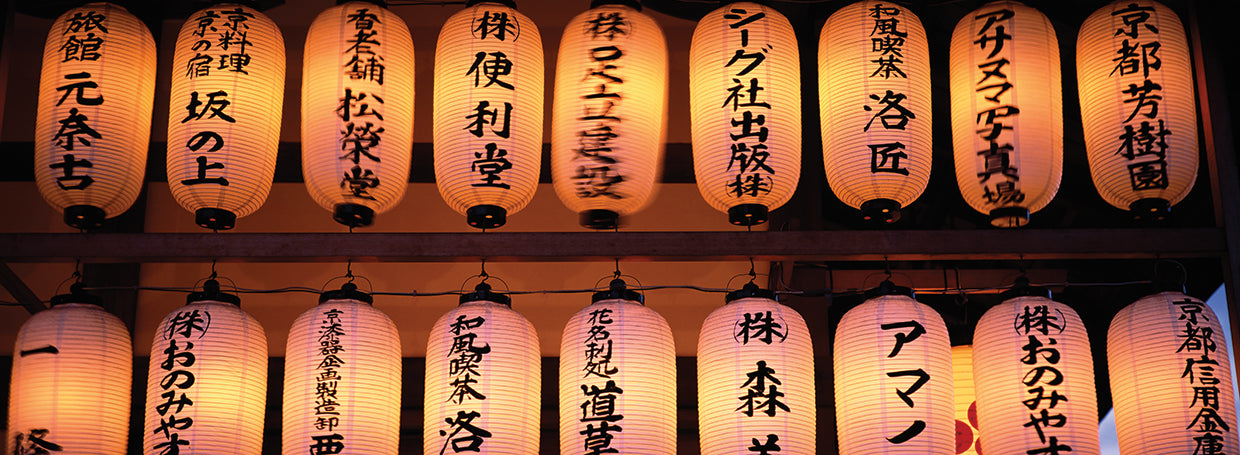 旅館 元奈古
京料理 京の宿 坂の上
香老舗 松榮堂
㈱便利堂
シーグ社出版㈱
和風喫茶 洛匠
アサヌマ写真場
京都芳樹園
一
㈱おのみやす
京漆器企画製造卸 西
和風喫茶 洛
花名刺処 道草
㈱森
アマノ
㈱おのみやす
京都信用金庫